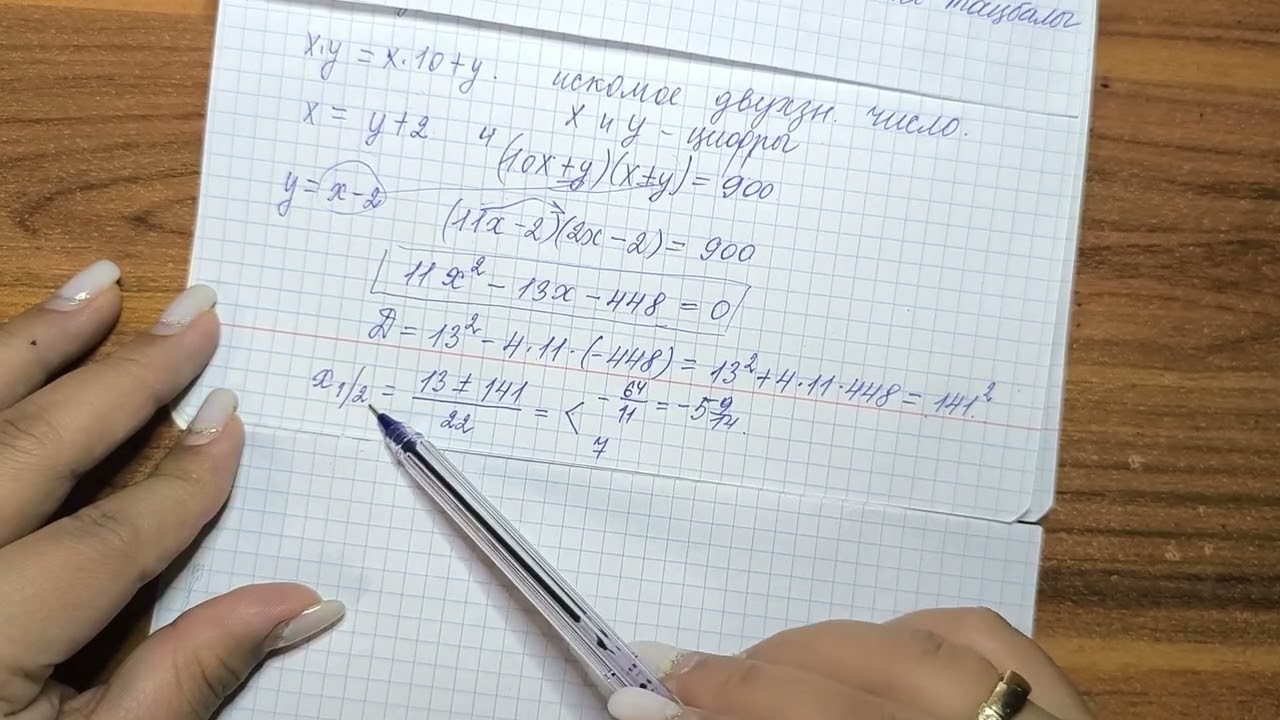 тацбалы
x·y = x·10+y. искомое двухзн. число.
x = y+2 и x и y - цифры
(10x+y)(x+y) = 900
y = x-2
(11x-2)(2x-2) = 900
11x² - 13x - 448 = 0
D = 13² - 4·11·(-448) = 13² + 4·11·448 = 141²
x₁/₂ = (13 ± 141)/22 = < -64/11 = -5 9/14.
7